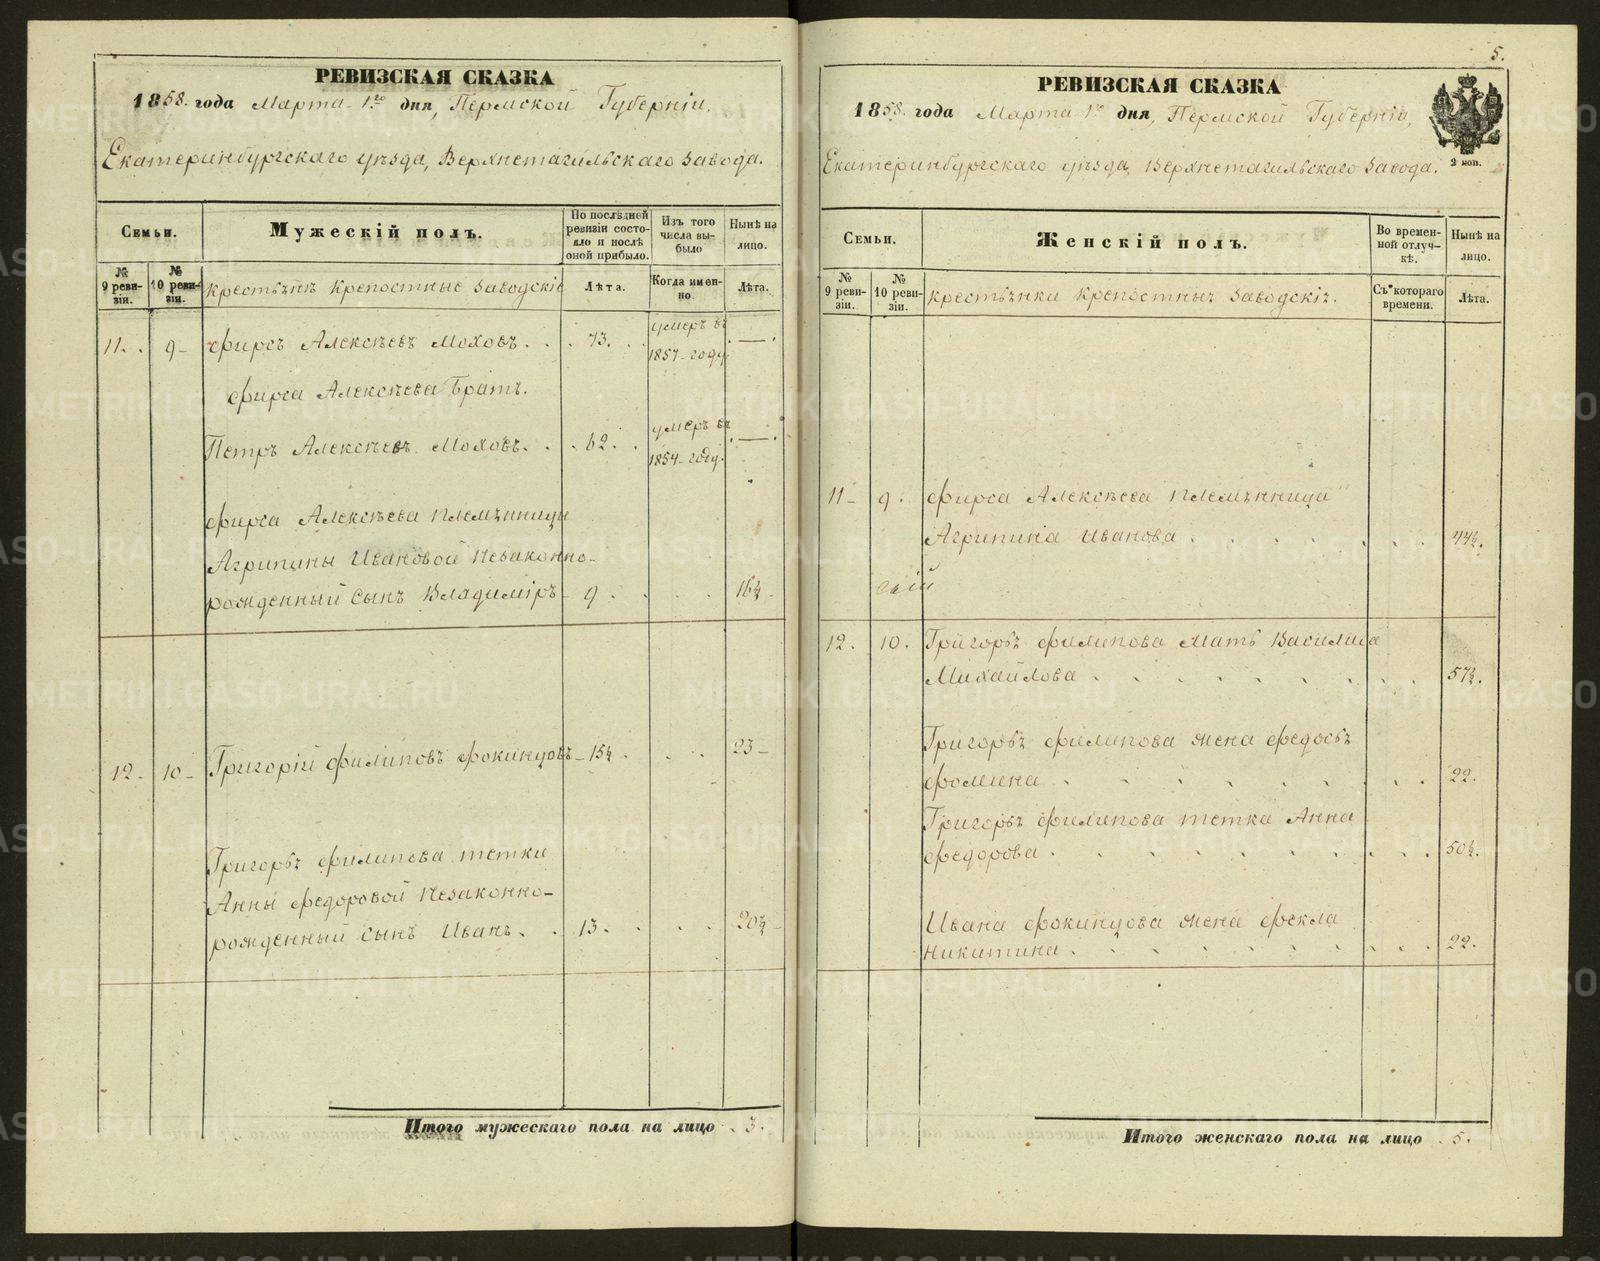 РЕВИЗСКАЯ СКАЗКА
1858. года Марта 1го дня, Пермской Губерніи,
Екатеринбургскаго уѣзда, Верхнетагильскаго завода.
Семьи.
Мужескій полъ.
По послѣдней ревизіи состояло и послѣ оной прибыло.
Изъ того числа выбыло
Нынѣ на лицо.
№ 9 ревизіи.
№ 10 ревизіи.
крестьяне крепостные заводскіе
Лѣта.
Когда именно.
Лѣта.
11. . 9- Фирсъ Алексѣевъ Моховъ. . . 73. . умеръ въ 1857-году. —.
Фирса Алексѣева Братъ.
Петръ Алексѣевъ Моховъ. . . 62. . умеръ въ 1854-году. —.
Фирса Алексѣева племянницы
Агрипины Ивановой незаконно-
рожденный сынъ Владиміръ- 9 . . . 16½-
12- 10- Григорій Филиповъ Фокинцовъ- 15½ . . . 23-
Григорья Филипова тетки
Анны Федоровой незаконно-
рожденный сынъ Иванъ. . 13. . . . 20½-
Итого мужескаго пола на лицо . 3.
5.
РЕВИЗСКАЯ СКАЗКА
1858. года Марта 1го дня, Пермской Губерніи,
Екатеринбургскаго уѣзда, Верхнетагильскаго завода.
2 коп.
Семьи.
Женскій полъ.
Во временной отлучкѣ.
Нынѣ на лицо.
№ 9 ревизіи.
№ 10 ревизіи.
крестьянки крепостныя заводскія.
Съ котораго времени.
Лѣта.
11- 9. Фирса Алексѣева племянница
Агрипина Иванова . . . . . . . . 44½.
12. 10. Григорья Филипова мать Василиса
Михайлова . . . . . . . . . 57½.
Григорья Филипова жена Федосья
Фомина . . . . . . . . 22.
Григорья Филипова тетка Анна
Федорова . . . . . . . . . 50½.
Ивана Фокинцова жена Фекла
Никитина . . . . . . . . . 22.
Итого женскаго пола на лицо . 5.
METRIKI.GASO-URAL.RU